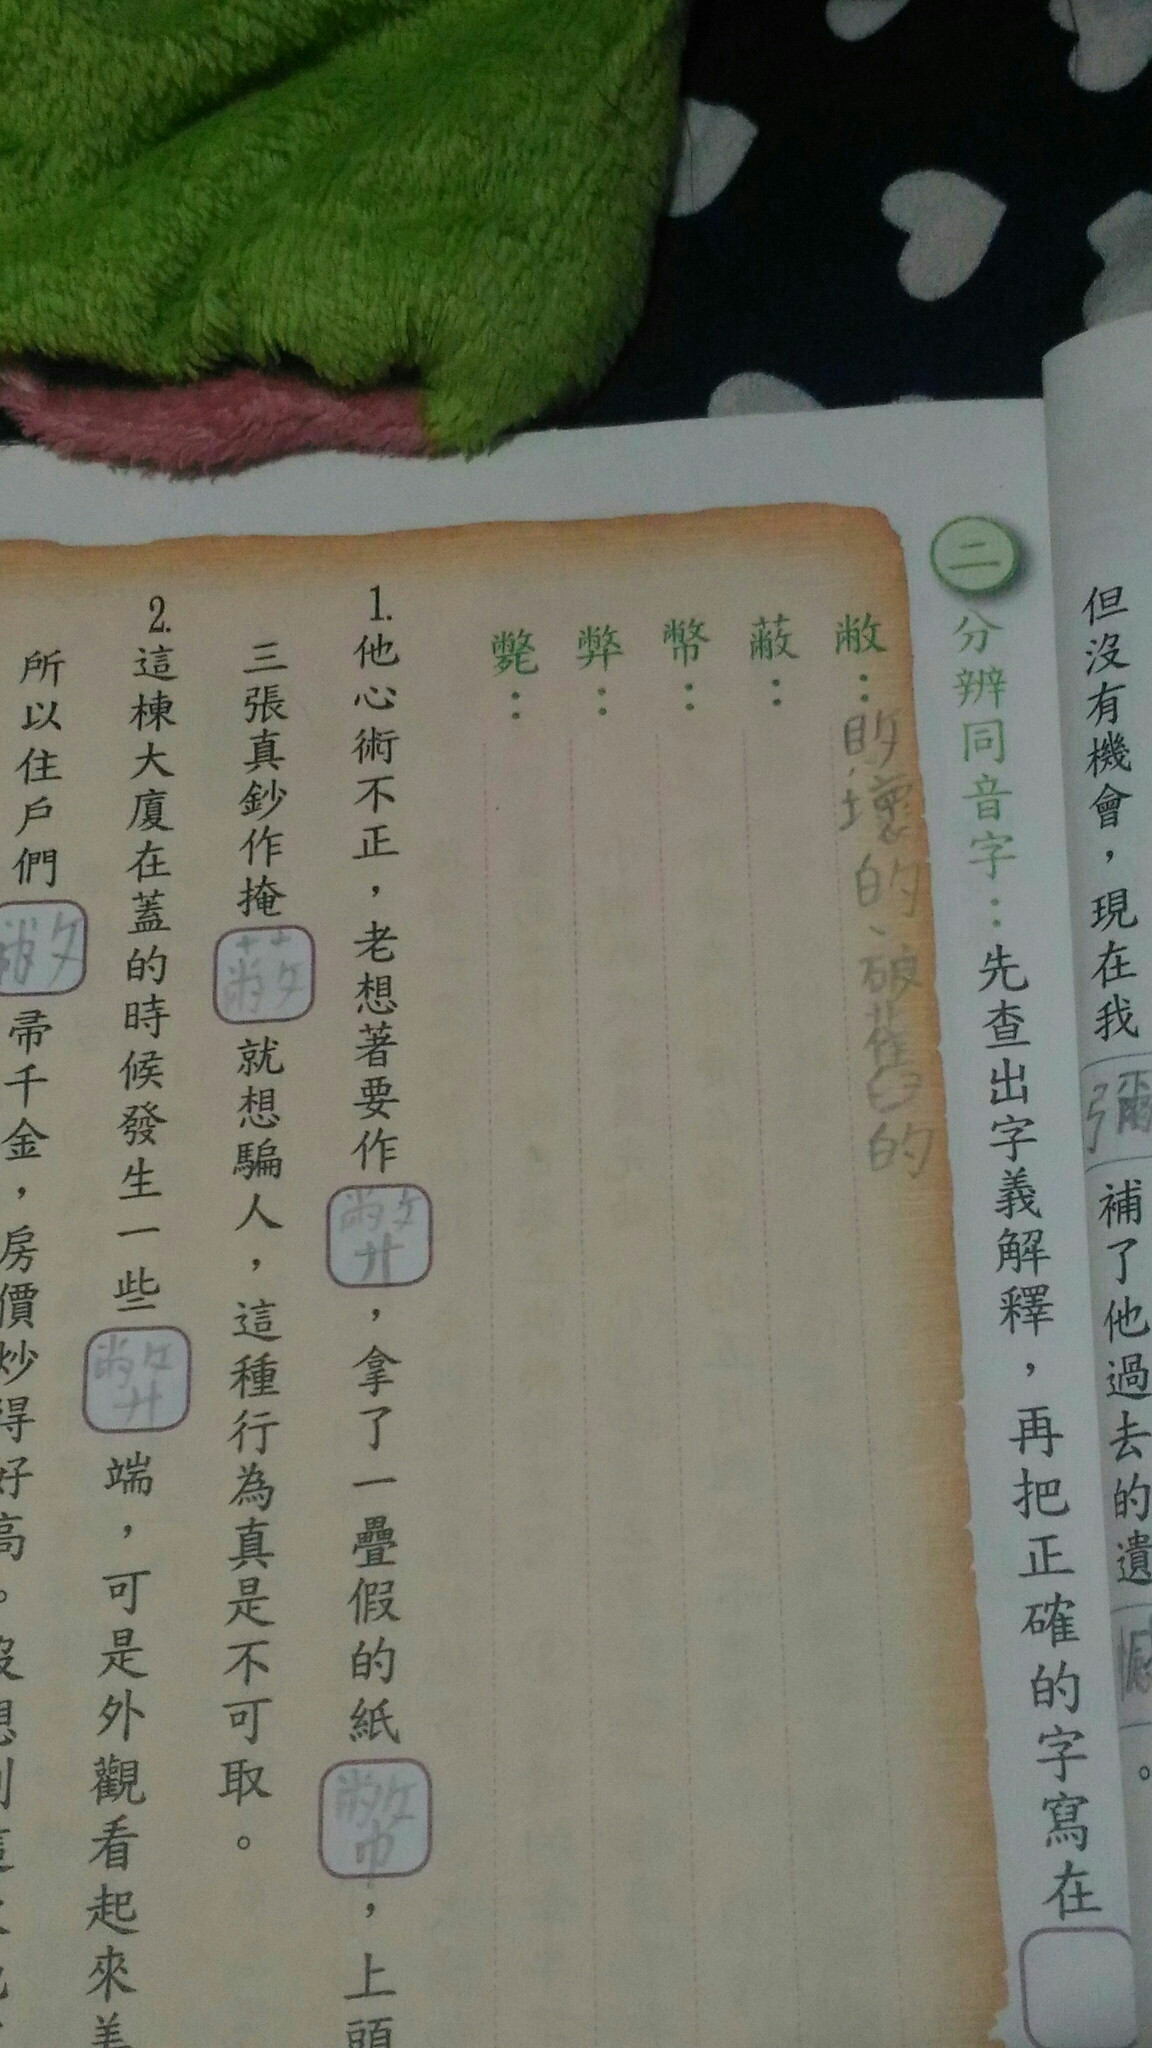 但沒有機會，現在我彌補了他過去的遺憾。
二 分辨同音字：先查出字義解釋，再把正確的字寫在
敝：敗壞的、破舊的
蔽：
幣：
弊：
斃：
1.他心術不正，老想著要作弊，拿了一疊假的紙幣，上頭
三張真鈔作掩蔽就想騙人，這種行為真是不可取。
2.這棟大廈在蓋的時候發生一些弊端，可是外觀看起來美
所以住戶們敝帚千金，房價炒得好高。沒想到這